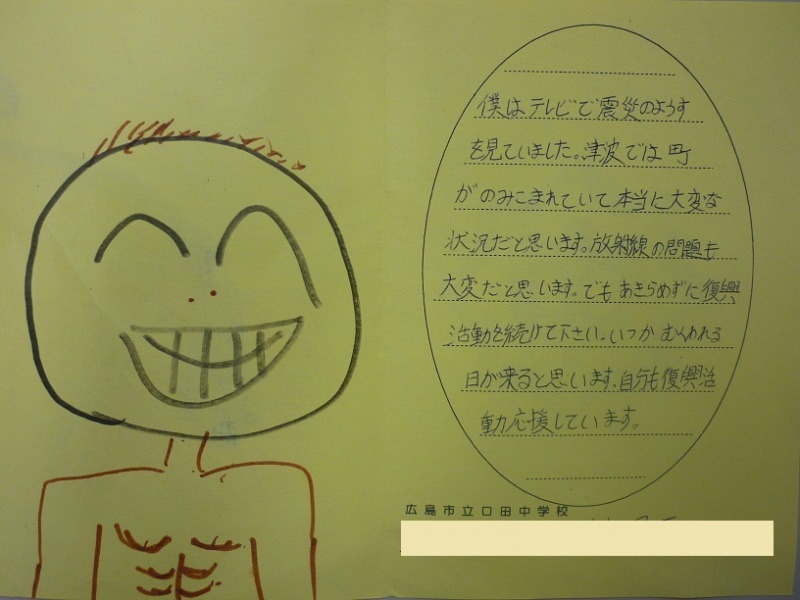 僕はテレビで震災のようす
を見ていました。津波では町
がのみこまれていて本当に大変な
状況だと思います。放射線の問題も
大変だと思います。でもあきらめずに復興
活動を続けて下さい。いつかむくわれる
日が来ると思います。自分も復興活
動応援しています。
広島市立口田中学校